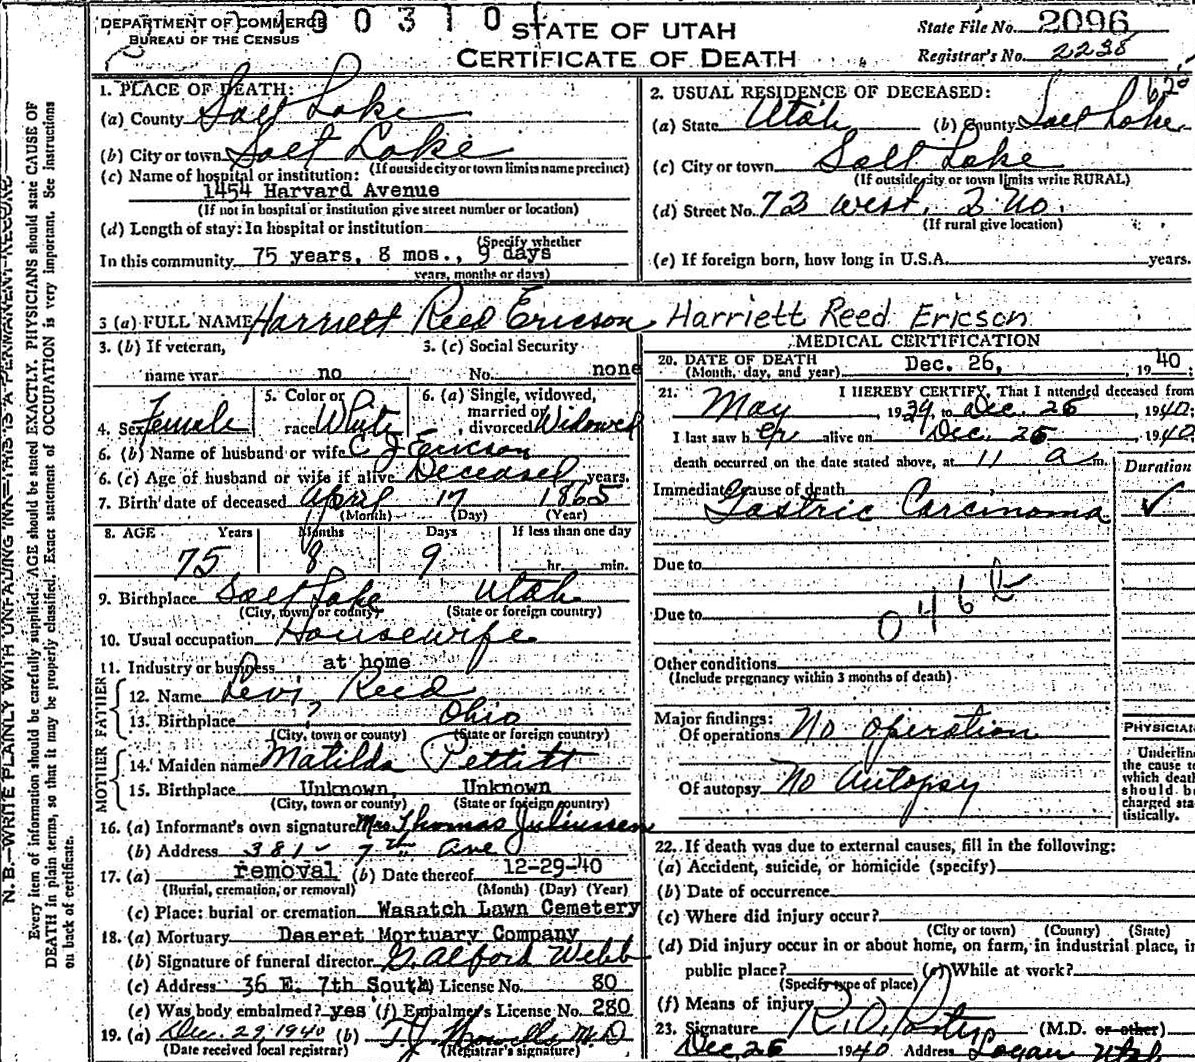 DEPARTMENT OF COMMERCE
BUREAU OF THE CENSUS
STATE OF UTAH
CERTIFICATE OF DEATH
State File No. 2096
Registrar's No. 2238
1. PLACE OF DEATH:
(a) County Salt Lake
(b) City or town Salt Lake
(If outside city or town limits name precinct)
(c) Name of hospital or institution:
1454 Harvard Avenue
(If not in hospital or institution give street number or location)
(d) Length of stay: In hospital or institution
(Specify whether
In this community 75 years, 8 mos., 9 days
years, months or days)
2. USUAL RESIDENCE OF DECEASED:
(a) State Utah (b) County Salt Lake
(c) City or town Salt Lake
(If outside city or town limits write RURAL)
(d) Street No. 72 West, 2 No.
(If rural give location)
(e) If foreign born, how long in U.S.A. years.
3 (a) FULL NAME Harriett Reed Ericson Harriett Reed Ericson
3. (b) If veteran, 3. (c) Social Security
name war no No. none
4. Sex Female 5. Color or race White 6. (a) Single, widowed, married or divorced Widowed
6. (b) Name of husband or wife C J Ericson
6. (c) Age of husband or wife if alive Deceased years.
7. Birth date of deceased April 17 1865
(Month) (Day) (Year)
8. AGE Years Months Days If less than one day
75 8 9 hr. min.
9. Birthplace Salt Lake Utah
(City, town or county) (State or foreign country)
10. Usual occupation Housewife
11. Industry or business at home
FATHER
12. Name Levi Reed
13. Birthplace ? Ohio
(City, town or county) (State or foreign country)
MOTHER
14. Maiden name Matilda Pettitt
15. Birthplace Unknown, Unknown
(City, town or county) (State or foreign country)
16. (a) Informant's own signature Mrs. Thomas Juliussen
(b) Address 381- 7th Ave
17. (a) removal (b) Date thereof 12-29-40
(Burial, cremation, or removal) (Month) (Day) (Year)
(c) Place: burial or cremation Wasatch Lawn Cemetery
18. (a) Mortuary Deseret Mortuary Company
(b) Signature of funeral director G. Alford Webb
(c) Address 36 E. 7th South License No. 80
(e) Was body embalmed? yes (f) Embalmer's License No. 280
19. (a) Dec. 29, 1940 (b) T.J. Howells M.D
(Date received local registrar) (Registrar's signature)
MEDICAL CERTIFICATION
20. DATE OF DEATH Dec. 26, 1940
(Month, day, and year)
21. I HEREBY CERTIFY, That I attended deceased from
May, 1939 to Dec. 26, 1940;
I last saw her alive on Dec. 26, 1940
death occurred on the date stated above, at 11 a m.
Duration
Immediate cause of death
Gastric Carcinoma ✓
Due to
Due to
046b
Other conditions
(Include pregnancy within 3 months of death)
Major findings:
Of operations No operation
Of autopsy No Autopsy
PHYSICIAN
Underline
the cause to
which death
should be
charged sta
tistically.
22. If death was due to external causes, fill in the following:
(a) Accident, suicide, or homicide (specify)
(b) Date of occurrence
(c) Where did injury occur?
(City or town) (County) (State)
(d) Did injury occur in or about home, on farm, in industrial place, in
public place? (e) While at work?
(Specify type of place)
(f) Means of injury
23. Signature R. O. Porter (M.D. or other)
Dec 26 1940 Address Logan Utah
N. B.—WRITE PLAINLY WITH UNFADING INK—THIS IS A PERMANENT RECORD
Every item of information should be carefully supplied. AGE should be stated EXACTLY. PHYSICIANS should state CAUSE OF
DEATH in plain terms, so that it may be properly classified. Exact statement of OCCUPATION is very important. See instructions
on back of certificate.